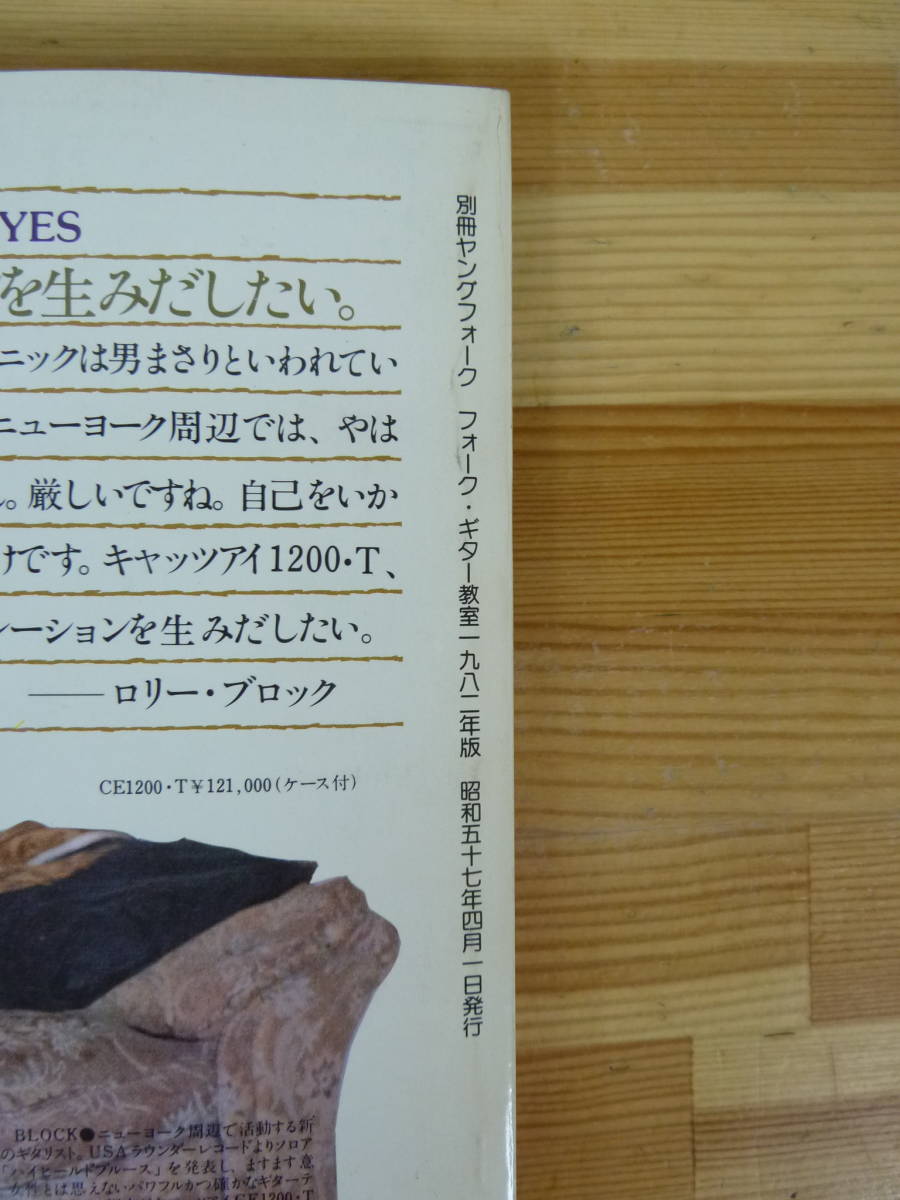 YES
を生みだしたい。
ニックは男まさりといわれてい
ニューヨーク周辺では、やは
。厳しいですね。自己をいか
けです。キャッツアイ1200・T、
レーションを生みだしたい。
──ロリー・ブロック
CE1200・T¥121,000(ケース付)
BLOCK●ニューヨーク周辺で活動する新
のギタリスト。USAラウンダーレコードよりソロア
「ハイヒールドブルース」を発表し、ますます意
女性とは思えないパワフルかつ確かなギターテ
CE1200・T
別冊ヤングフォーク フォーク・ギター教室一九八二年版 昭和五十七年四月一日発行